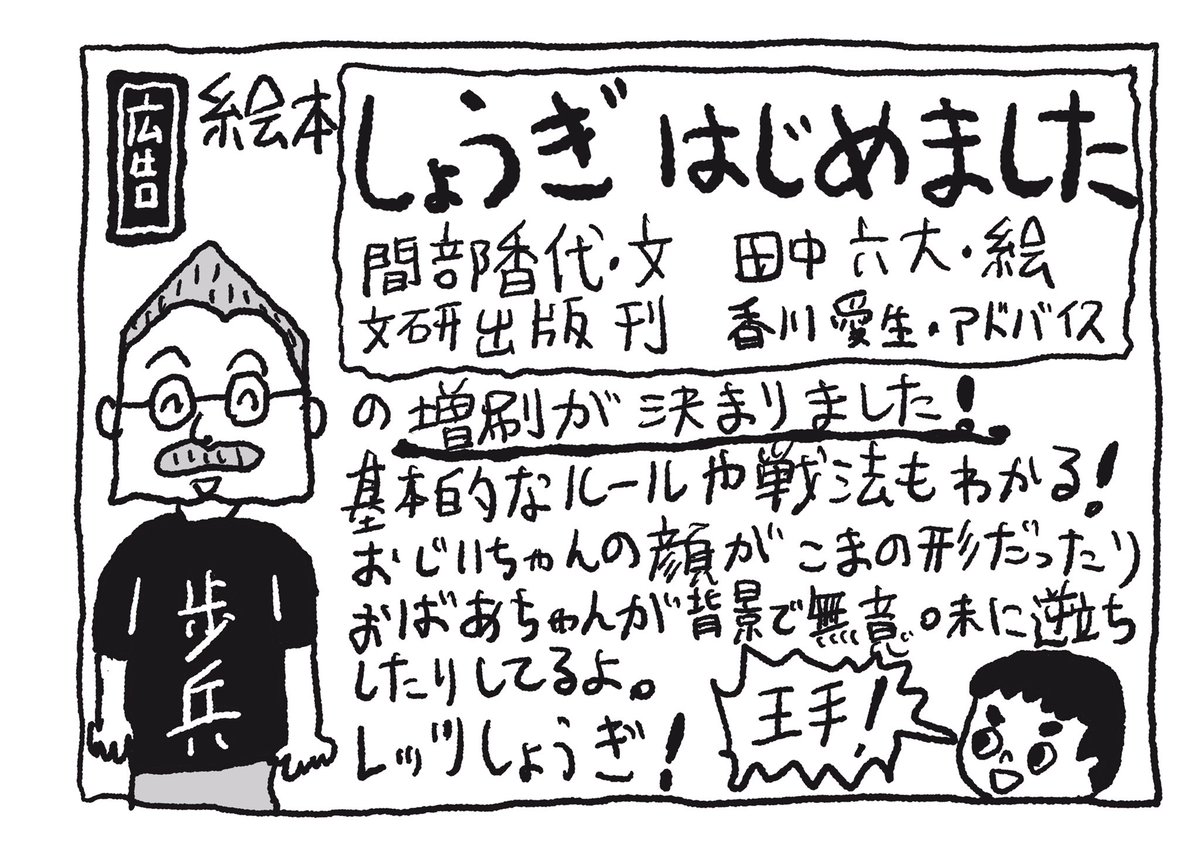 広告
絵本
しょうぎ はじめました
間部香代・文 田中六大・絵
文研出版 刊 香川愛生・アドバイス
の増刷が決まりました!
基本的なルールや戦法もわかる!
おじいちゃんの顔がこまの形だったり
おばあちゃんが背景で無意味に逆立ち
したりしてるよ。
レッツしょうぎ!
王手!
歩兵